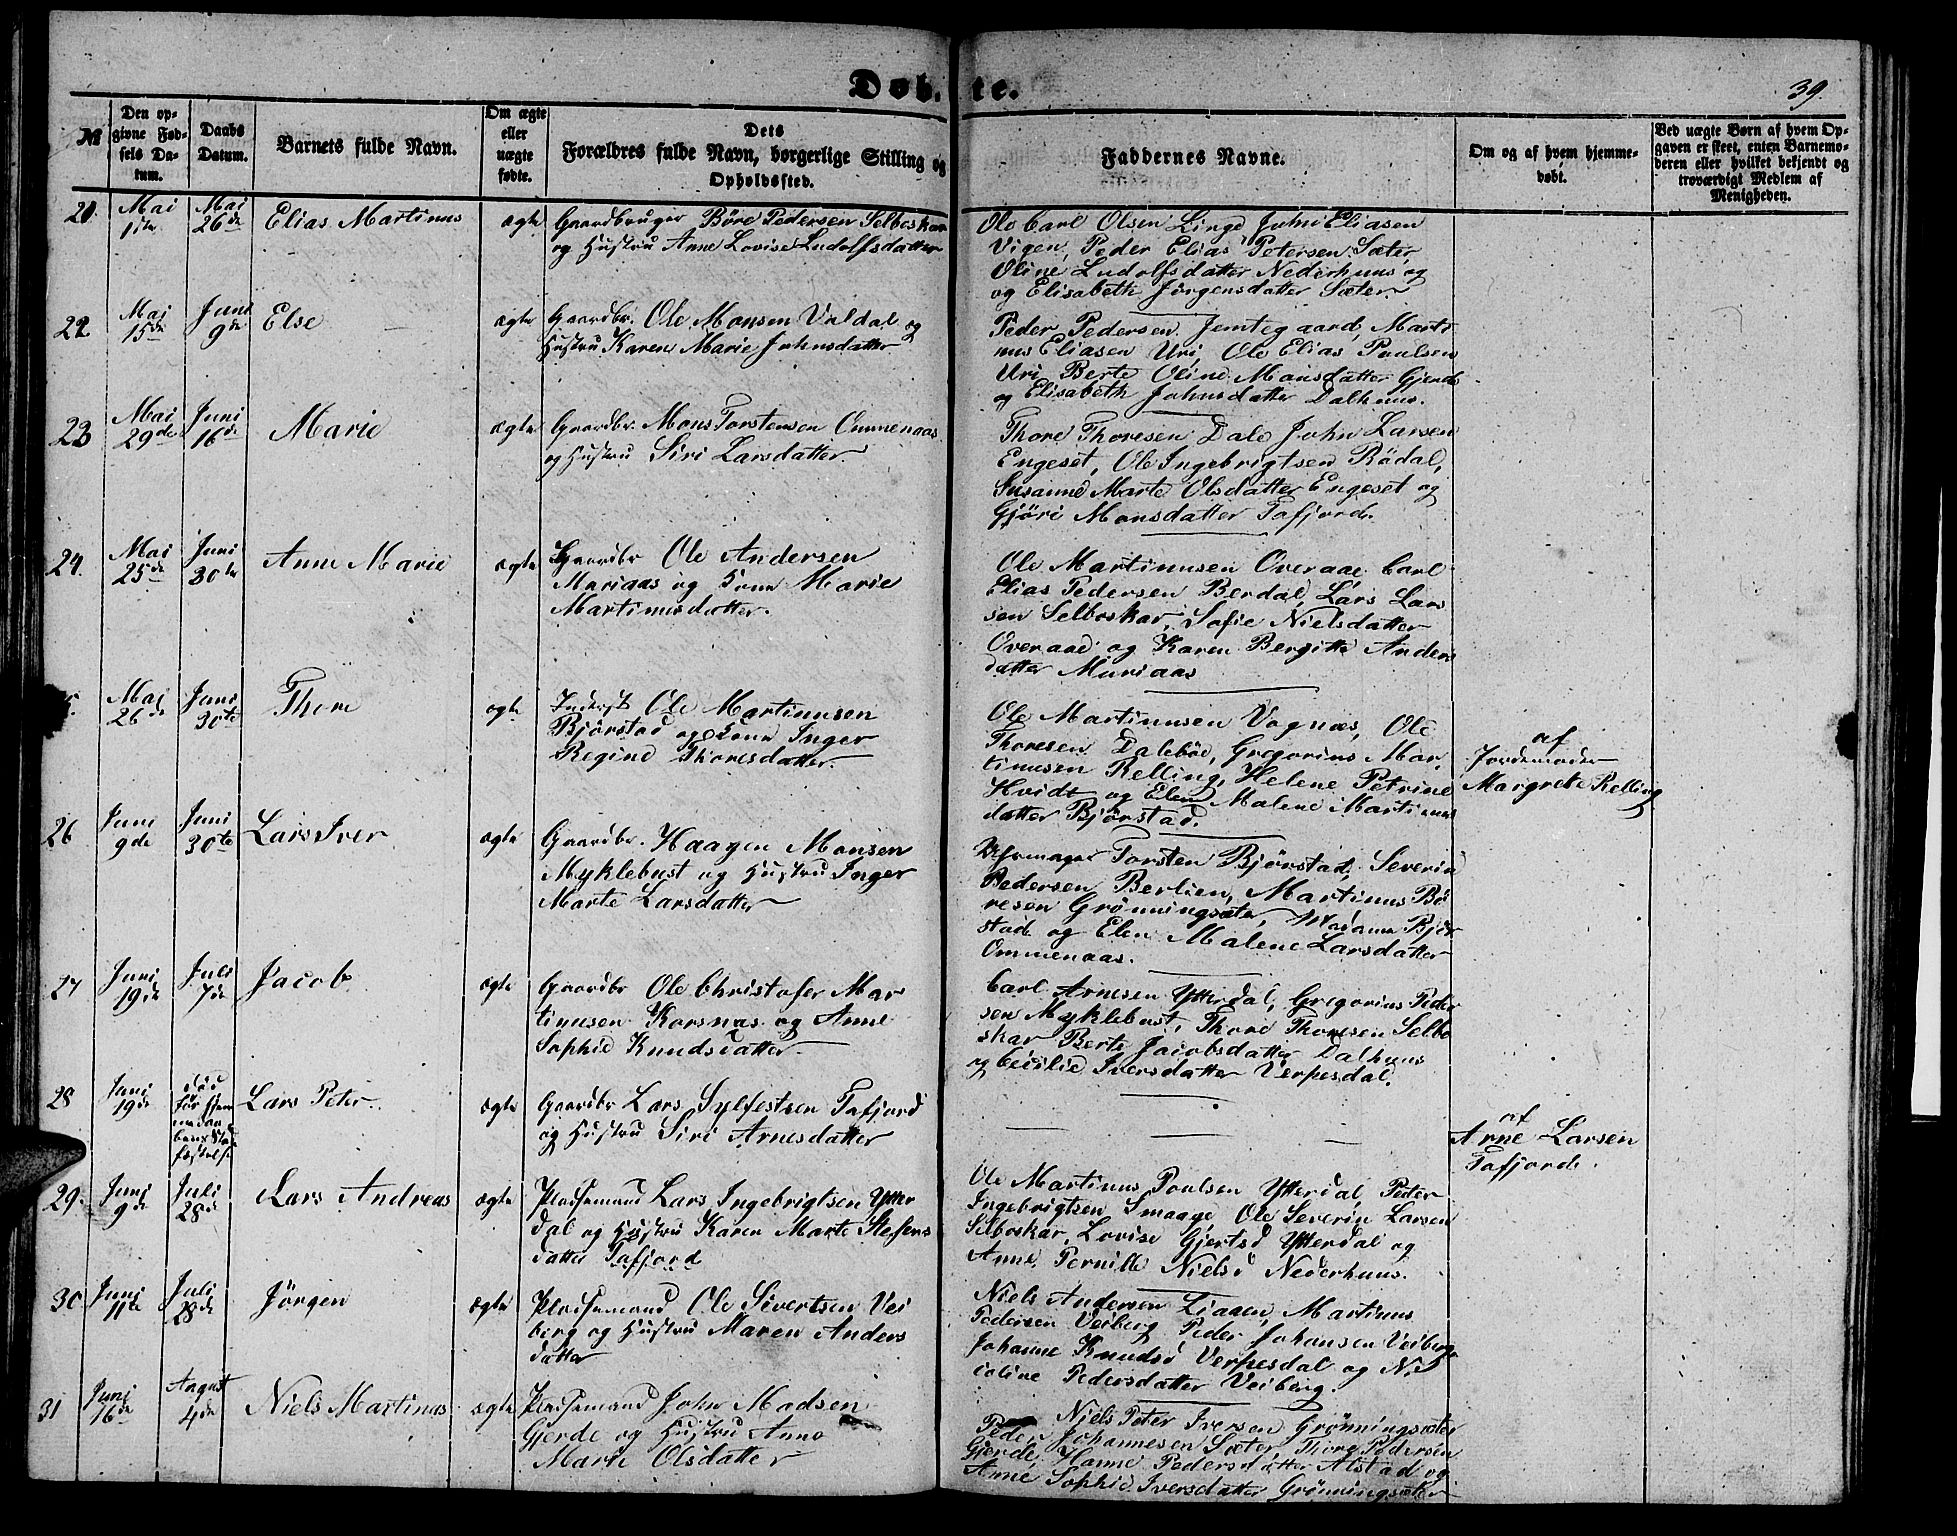 Døb. te.
39.
№
Den op-
givne Fød-
sels Da-
tum.
Daabs
Datum.
Barnets fulde Navn.
Om ægte
eller
uægte
fødte.
Dets
Forældres fulde Navn, borgerlige Stilling og
Opholdssted.
Faddernes Navne.
Om og af hvem hjemme-
døbt.
Ved uægte Børn af hvem Op-
gaven er skeet, enten Barnemo-
deren eller hvilket bekjendt og
troværdigt Medlem af
Menigheden.
21.
Mai
1ste
Mai
26de
Elias Martinus
ægte
Gaardbruger Böre Pedersen Selboskar
og Hustru Anne Lovise Ludolfsdatter
Ole Carl Olsen Linge John Eliasen
Vigen, Peder Elias Petersen Sæter
Oline Ludolfsdatter Nederhuus og
og Elisabeth Jörgensdatter Sæter.
22
Mai
15de
Juni
9de
Else
ægte
Gaardbr. Ole Monsen Valdal og
Hustru Karen Marie Johnsdatter
Peder Pedersen Jemtegaard, Marti
nus Eliasen Uri, Ole Elias Paulsen
Uri Berte Oline Monsdatter Gjerde
og Elisabeth Johnsdatter Dalhuus.
23
Mai
29de
Juni
16de
Marie
ægte
Gaardbr. Mons Torstensen Ommenaas
og Hustru Siri Larsdatter.
Thore Thoresen Dale John Larsen
Engeset, Ole Ingebrigtsen Rödal,
Susanne Marte Olsdatter Engeset og
Gjöri Monsdatter Tafjord.
24.
Mai
25de
Juni
30te
Anne Marie
ægte
Gaardbr Ole Andersen
Muriaas og Kone Marie
Martinusdatter.
Ole Martinusen Overaae Carl
Elias Pedersen Berdal, Lars Lars
sen Selboskar, Sofie Nielsdatter
Overaae og Karen Bergitte Anders
datter Muriaas
5.
Mai
26de
Juni
30te
Thore
ægte
Inderst Ole Martinusen
Bjørstad og Kone Inger
Regine Thoresdatter.
Ole Martinusen Vognæs, Ole
Thoresen Daleböe, Gregorius Mar
tinusen Relling, Helene Petrine
Hvidt og Elen Malene Martinus
datter Bjørstad.
af
Jordemoder
Margrete Relling
26
Juni
9de
Juni
30te
Lars Iver
ægte
Gaardbr. Haagen Monsen
Myklebust og Hustru Inger
Marte Larsdatter
Torsten Bjørstad, Severin
Pedersen Berlien, Martinus Bö
resen Grönningsæter, Madame Bjør
stad og Elen Malene Larsdatter
Ommenaas.
27
Juni
19de
Juli
7de
Jacob
ægte
Gaardbr Ole Christofer Mar
tinusen Korsnæs og Anne
Sophie Knudsdatter.
Carl Arnesen Ytterdal, Gregorius Peder
sen Myklebust, Thore Thoresen Selbo
skar Berte Jacobsdatter Dalhuus
og Cecilie Iversdatter Verpesdal.
28
Juni
19de
död
før hjem
medaa
bens Sta
fæstelse
Lars Peter.
ægte
Gaardbr Lars Sylfestsen Tafjord
og Hustru Siri Arnesdatter
af
Arne Larsen
Tafjord.
29.
Juni
9de
Juli
28de
Lars Andreas
ægte
Pladsemand Lars Ingebrigtsen Ytter
dal og Hustru Karen Marte Stefens
datter Tafjord
Ole Martinus Poulsen Ytterdal, Peter
Ingebrigtsen Smaage, Ole Severin Larsen
Selboskar, Lovise Gjertsd Ytterdal og
Anne Pernille Nielsd Nederhuus.
30
Juni
11te
Juli
28de
Jörgen
ægte
Pladsemand Ole Sivertsen Vei
berg og Hustru Maren Anders
datter
Niels Andersen Liaaen, Martinus
Pedersen Veiberg Peder Johansen Veiberg
Johanne Knudsd Verpesdal og Ni
coline Pedersdatter Veiberg.
31
Juni
16de
August
4de
Niels Martinus
ægte
Pladsemand John Madsen
Gjerde og Hustru Anne
Marte Olsdatter
Niels Peter Iversen Grönningsæter
Peder Johannesen Sæter, Thore Pedersen
Gjerde, Hanne Pedersdatter Alstad og
Anne Sophie Iversdatter Grönningsæter